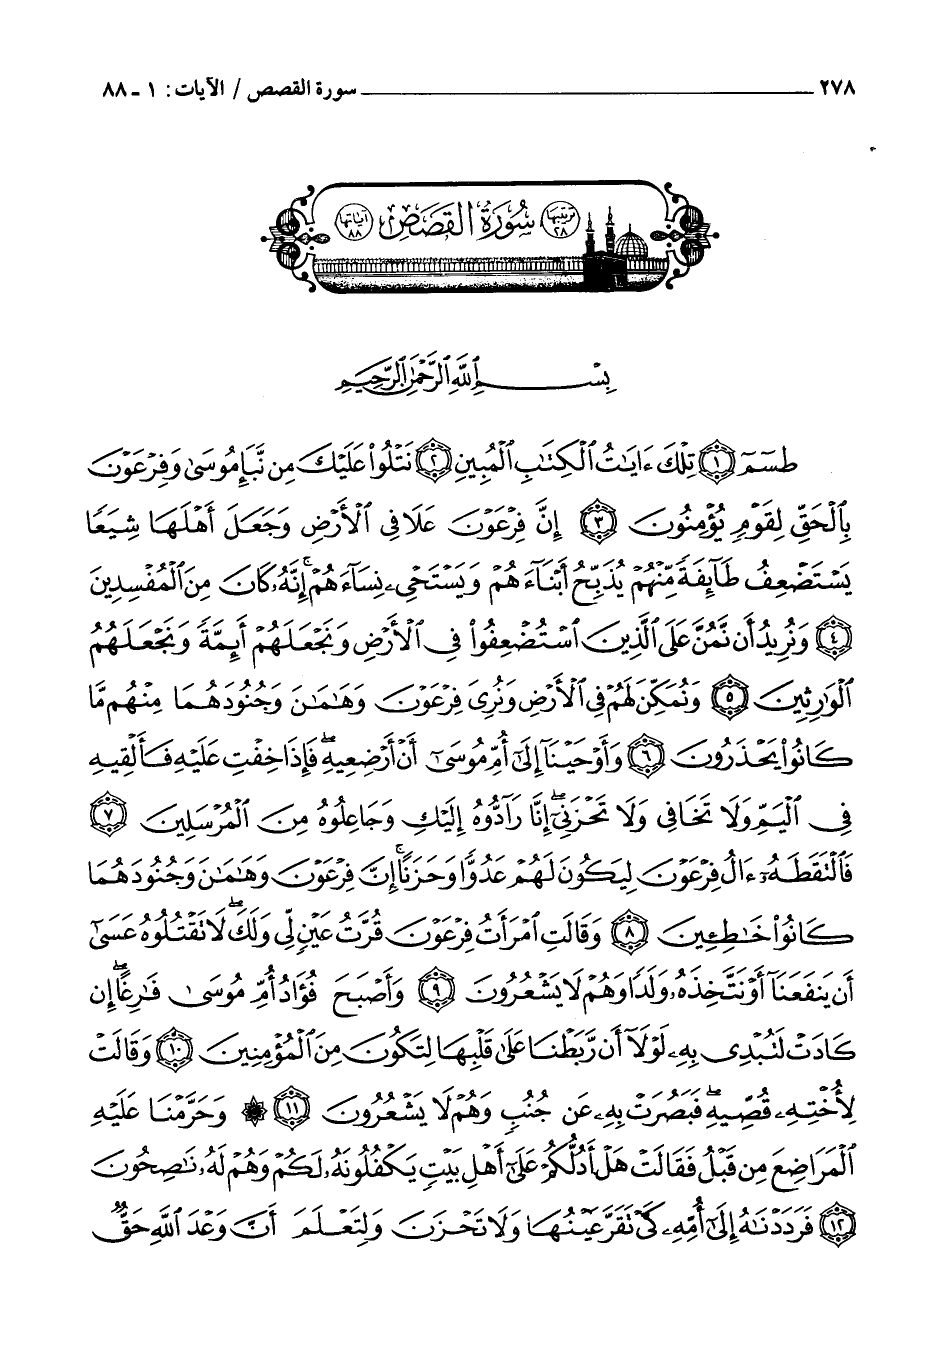 ٢٧٨ سورة القصص / الآيات: ١ - ٨٨
ترتيبها ٢٨ سُورَةُ القَصَصِ آياتها ٨٨
بِسْمِ ٱللَّهِ ٱلرَّحْمَٰنِ ٱلرَّحِيمِ
طسٓمٓ ١ تِلْكَ ءَايَٰتُ ٱلْكِتَٰبِ ٱلْمُبِينِ ٢ نَتْلُوا۟ عَلَيْكَ مِن نَّبَإِ مُوسَىٰ وَفِرْعَوْنَ
بِٱلْحَقِّ لِقَوْمٍ يُؤْمِنُونَ ٣ إِنَّ فِرْعَوْنَ عَلَا فِى ٱلْأَرْضِ وَجَعَلَ أَهْلَهَا شِيَعًا
يَسْتَضْعِفُ طَآئِفَةً مِّنْهُمْ يُذَبِّحُ أَبْنَآءَهُمْ وَيَسْتَحْىِۦ نِسَآءَهُمْ ۚ إِنَّهُۥ كَانَ مِنَ ٱلْمُفْسِدِينَ
٤ وَنُرِيدُ أَن نَّمُنَّ عَلَى ٱلَّذِينَ ٱسْتُضْعِفُوا۟ فِى ٱلْأَرْضِ وَنَجْعَلَهُمْ أَئِمَّةً وَنَجْعَلَهُمُ
ٱلْوَٰرِثِينَ ٥ وَنُمَكِّنَ لَهُمْ فِى ٱلْأَرْضِ وَنُرِىَ فِرْعَوْنَ وَهَٰمَٰنَ وَجُنُودَهُمَا مِنْهُم مَّا
كَانُوا۟ يَحْذَرُونَ ٦ وَأَوْحَيْنَآ إِلَىٰٓ أُمِّ مُوسَىٰٓ أَنْ أَرْضِعِيهِ ۖ فَإِذَا خِفْتِ عَلَيْهِ فَأَلْقِيهِ
فِى ٱلْيَمِّ وَلَا تَخَافِى وَلَا تَحْزَنِىٓ ۖ إِنَّا رَآدُّوهُ إِلَيْكِ وَجَاعِلُوهُ مِنَ ٱلْمُرْسَلِينَ ٧
فَٱلْتَقَطَهُۥٓ ءَالُ فِرْعَوْنَ لِيَكُونَ لَهُمْ عَدُوًّا وَحَزَنًا ۗ إِنَّ فِرْعَوْنَ وَهَٰمَٰنَ وَجُنُودَهُمَا
كَانُوا۟ خَٰطِـِٔينَ ٨ وَقَالَتِ ٱمْرَأَتُ فِرْعَوْنَ قُرَّتُ عَيْنٍ لِّى وَلَكَ ۖ لَا تَقْتُلُوهُ عَسَىٰٓ
أَن يَنفَعَنَآ أَوْ نَتَّخِذَهُۥ وَلَدًا وَهُمْ لَا يَشْعُرُونَ ٩ وَأَصْبَحَ فُؤَادُ أُمِّ مُوسَىٰ فَٰرِغًا ۖ إِن
كَادَتْ لَتُبْدِى بِهِۦ لَوْلَآ أَن رَّبَطْنَا عَلَىٰ قَلْبِهَا لِتَكُونَ مِنَ ٱلْمُؤْمِنِينَ ١٠ وَقَالَتْ
لِأُخْتِهِۦ قُصِّيهِ ۖ فَبَصُرَتْ بِهِۦ عَن جُنُبٍ وَهُمْ لَا يَشْعُرُونَ ١١ ۞ وَحَرَّمْنَا عَلَيْهِ
ٱلْمَرَاضِعَ مِن قَبْلُ فَقَالَتْ هَلْ أَدُلُّكُمْ عَلَىٰٓ أَهْلِ بَيْتٍ يَكْفُلُونَهُۥ لَكُمْ وَهُمْ لَهُۥ نَٰصِحُونَ
١٢ فَرَدَدْنَٰهُ إِلَىٰٓ أُمِّهِۦ كَىْ تَقَرَّ عَيْنُهَا وَلَا تَحْزَنَ وَلِتَعْلَمَ أَنَّ وَعْدَ ٱللَّهِ حَقٌّ